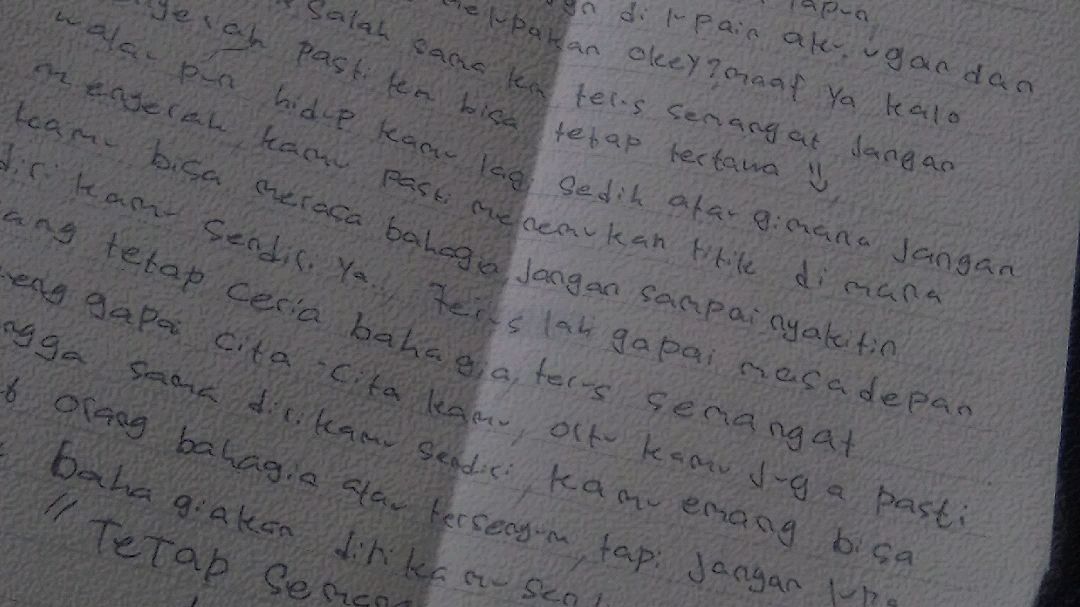 di lupain aku, dan
melupakan okey? maaf ya kalo
salah sama km terus semangat jangan
pasti km bisa tetap tertawa
walau pun hidup kamu lagi sedih atau gimana jangan
menyerah, kamu pasti menemukan titik di mana
kamu bisa merasa bahagia jangan sampai nyakitin
diri kamu sendiri ya.., Terus lah gapai masa depan
tetap ceria bahagia, terus semangat
gapai cita-cita kamu, ortu kamu juga pasti
sama diri kamu sendiri, kamu emang bisa
orang bahagia atau tersenyum, tapi jangan lupa
bahagiakan diri kamu
// TETAP